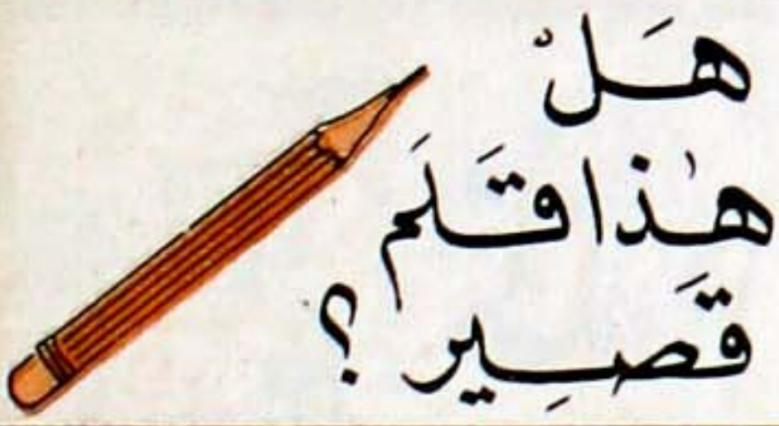 هَلْ
هٰذا قَلَم
قَصِير ؟